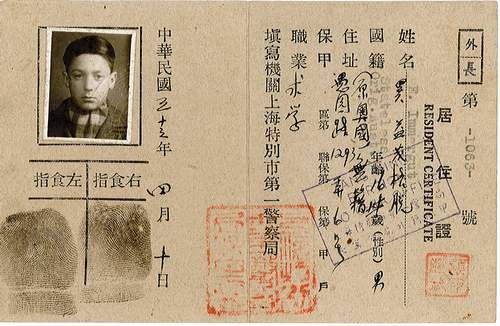 外長
第 -1063- 號
居住證
RESIDENT CERTIFICATE
姓名
國籍 原奧國 無籍 年齡 16 歲(性別) 男
住址 愚園路 1293 弄
保甲 區第 聯保第 保第 甲 戶
職業 求学
填寫機關上海特別市第一警察局
中華民國三十三年 四月 十日
右食指
左食指